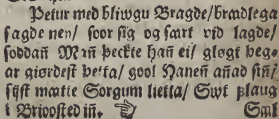 Petur med bliwgu Bragde/ brædlega
sagde nen/ soor sig og sært vid lagde/
soddañ Mañ þeckte hañ ei/ gløgt beg-
ar giørdest betta/ gool Hanen añad siñ/
sijst mætte Sorgum lietta/ Swt þlaug
i Brioosted iñ. ☞ Sml